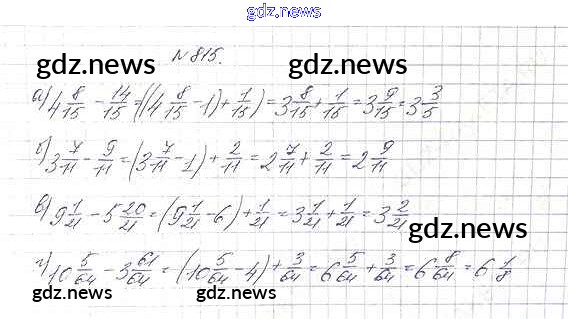 gdz.news
№815.
gdz.news gdz.news
а) 4 8/15 - 14/15 = ((4 8/15 - 1) + 1/15) = 3 8/15 + 1/15 = 3 9/15 = 3 3/5
б) 3 7/11 - 9/11 = (3 7/11 - 1) + 2/11 = 2 7/11 + 2/11 = 2 9/11
в) 9 1/21 - 5 20/21 = (9 1/21 - 6) + 1/21 = 3 1/21 + 1/21 = 3 2/21
gdz.news
г) 10 5/64 - 3 61/64 = (10 5/64 - 4) + 3/64 = 6 5/64 + 3/64 = 6 8/64 = 6 1/8
gdz.news
gdz.news